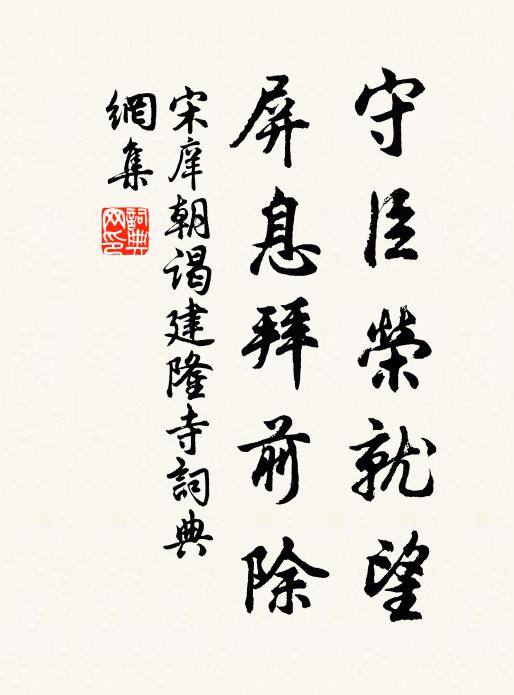 守臣榮就望
屏息拜前除
宋庠朝謁建隆寺詞典
網集
詞典网印